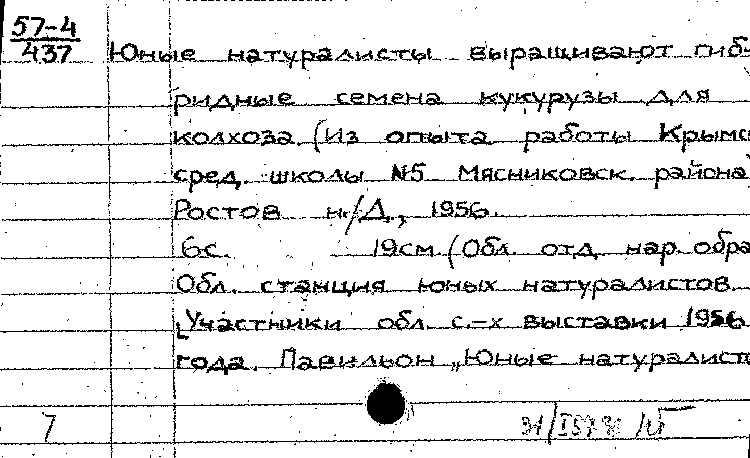 57-4
437 Юные натуралисты выращивают гиб-
ридные семена кукурузы для
колхоза (Из опыта работы Крымс
сред. школы №5 Мясниковск. района
Ростов н/Д., 1956.
6с. 19см. (Обл. отд. нар. обра
Обл. станция юных натуралистов.
Участники обл. с.-х выставки 1956
года. Павильон „Юные натуралист
7